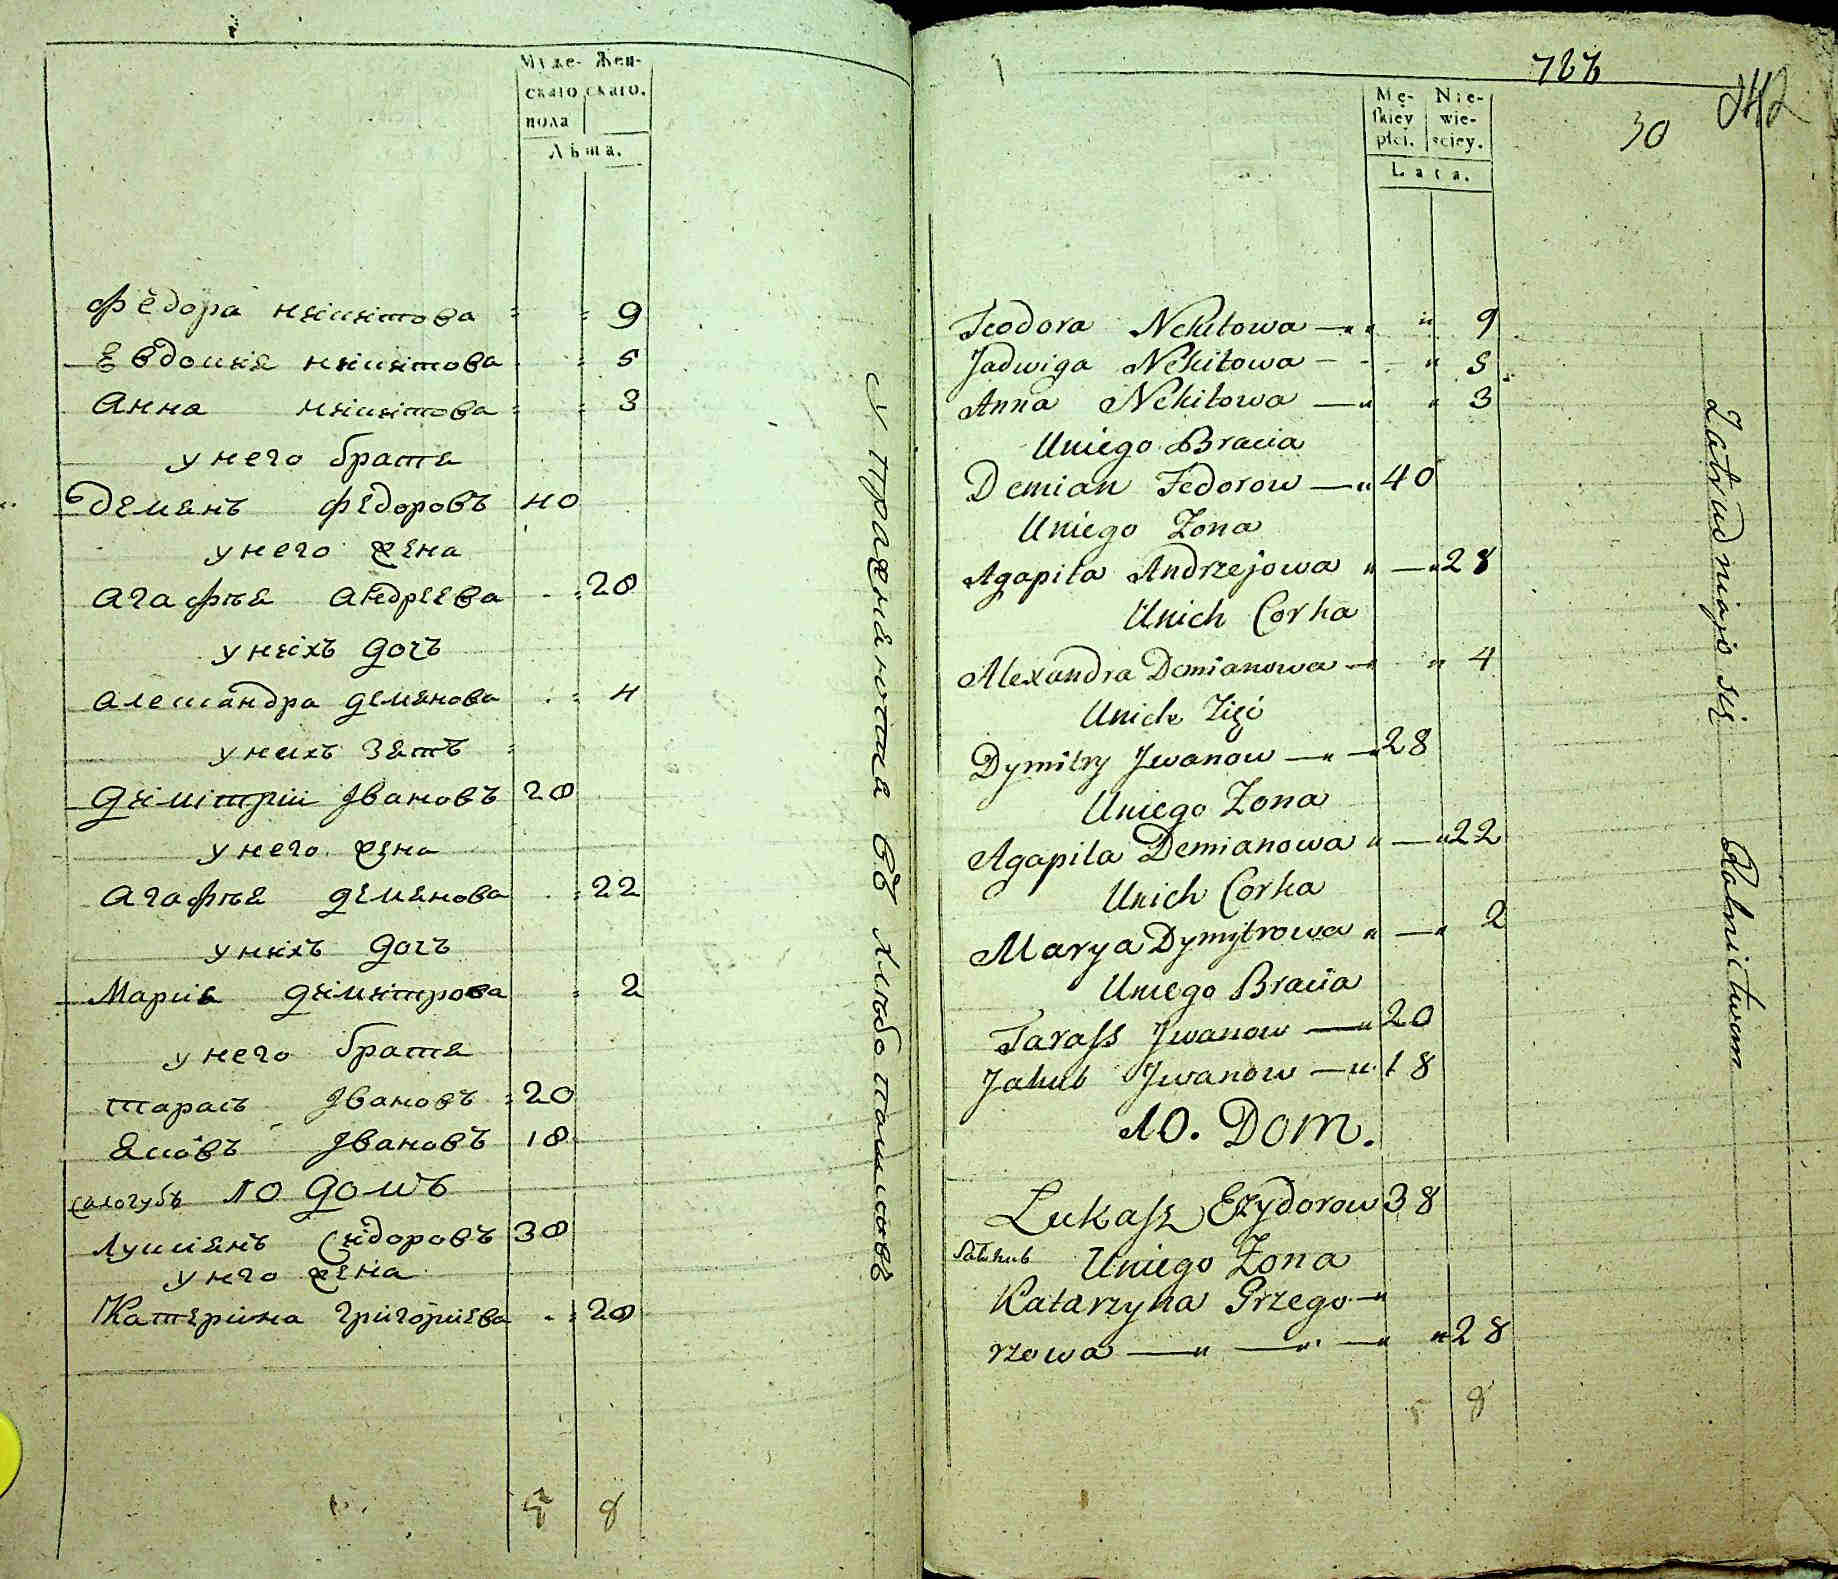 Муже- Жен-
скаго скаго.
пола
Лѣта.
Федора Никитова 9
Евдокия Никитова 5
Анна Никитова 3
у него братя
6 Демянъ Федоровъ 40
у него жена
Агафия Андреева 28
у нихъ дочь
Александра Демянова 4
у нихъ зять
Димитрий Ивановъ 28
у него жена
Агафия Демянова 22
у нихъ дочь
Мария Димитрова 2
у него братя
Тарасъ Ивановъ 20
Яковъ Ивановъ 18
Салогубъ 10 домъ
Лукиянъ Сидоровъ 38
у нго жена
Катерина Григориева 28
5 8
Упражняются въ хлебопашсивѣ
787
242
30
Mę- Nie-
skiey wie-
płci. sciey.
Lata.
Teodora Nekitowa 9
Jadwiga Nekitowa 5
Anna Nekitowa 3
Uniego Bracia
Demian Fedorow 40
Uniego Zona
Agapita Andrzejowa 28
Unich Corka
Alexandra Demianowa 4
Unich Zięć
Dymitry Jwanow 28
Uniego Zona
Agapita Demianowa 22
Unich Corka
Marya Dymytrowa 2
Uniego Bracia
Tarass Jwanow 20
Jakub Jwanow 18
10. Dom.
Lukasz Ezydorow 38
Uniego Zona
Katarzyna Grzego
rzowa 28
5 8
Zatrudniaio się Rolnictwem